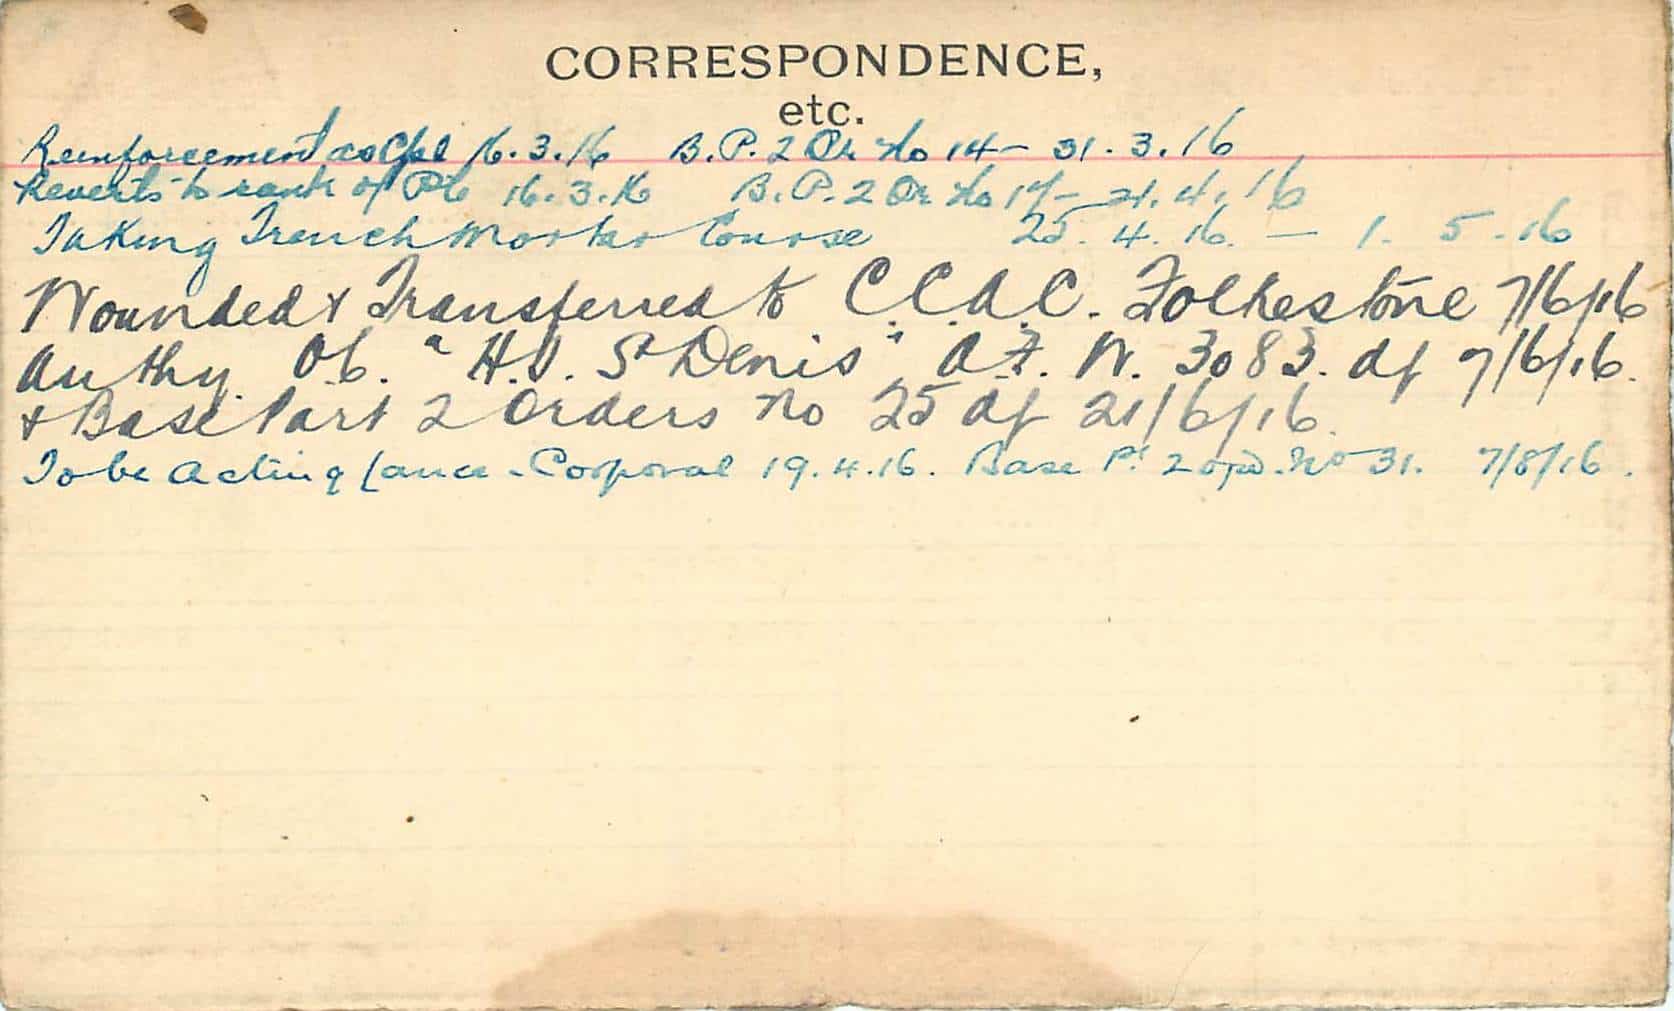 CORRESPONDENCE,
etc.
Reinforcement as Cpl 16.3.16 B.P.2 Or No 14 - 31.3.16
Reverts to rank of Pte 16.3.16 B.P.2 Or No 17 - 21.4.16
Taking Trench Mortar Course 25.4.16 - 1.5.16
Wounded & Transferred to C.C.A.C. Folkestone 7/6/16
Authy. Ob. "H.S. St Denis". A.F. W. 3083. df 7/6/16.
& Base Part 2 Orders No 25 df 21/6/16.
To be Acting Lance-Corporal 19.4.16. Base Pt 2 ord. No 31. 7/8/16.